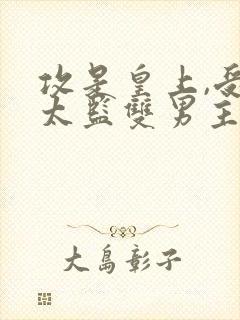 攻是皇上,受
太監雙男主
大島彰子